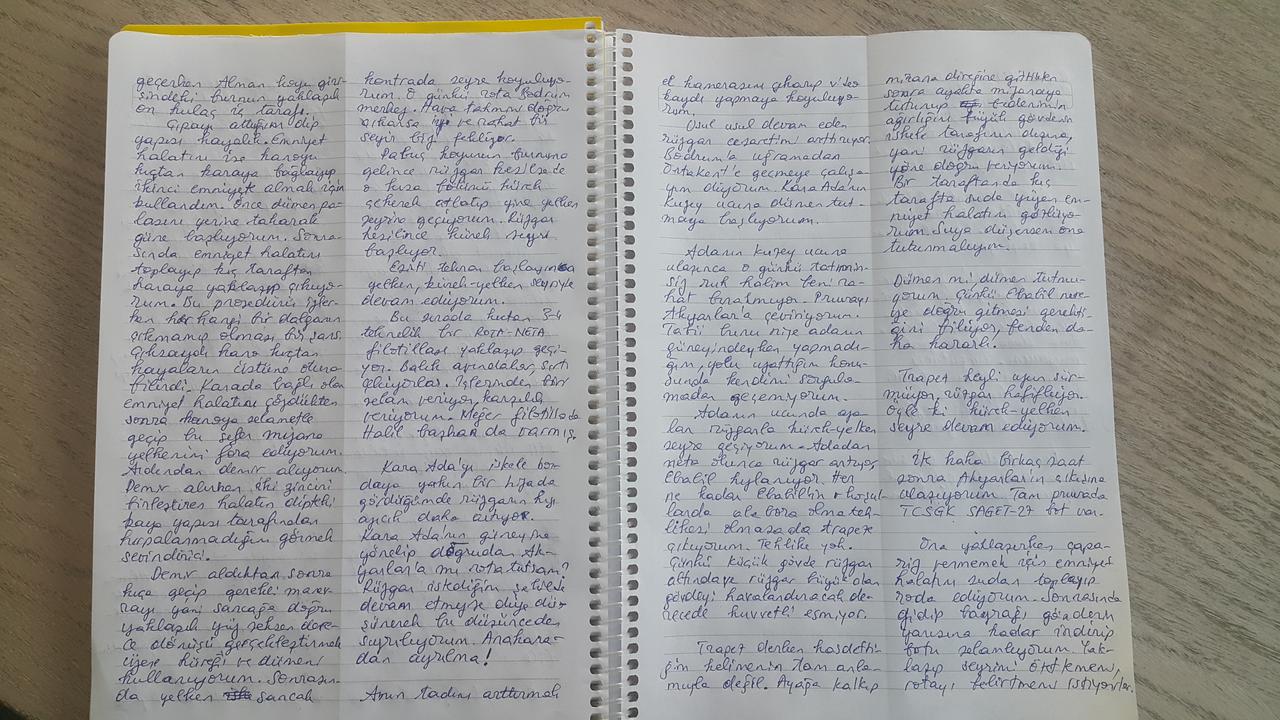 geçerken Alman koyu giri-
sindeki burnun yaklaşık
on kulaç iç tarafı.
Çıpayı attığım dip
yapısı kayalık. Emniyet
halatını ise karoyu
kıçtan karaya bağlayıp
ikinci emniyet almak için
kullandım. Önce dümen pa-
lasını yerine takarak
güne başlıyorum. Sonra-
sında emniyet halatını
toplayıp kıç taraftan
karaya yaklaşıp çıkıyo-
rum. Bu prosedürü işler-
ken her hangi bir dalganın
çıkmamış olması bir şans.
Çıksaydı karo kıçtan
kayaların üstüne otura-
bilirdi. Karada bağlı olan
emniyet halatını çözdükten
sonra karoya selametle
geçip bu sefer mizana
yelkenini fora ediyorum.
Ardından demir alıyorum.
Demir alırken iki zincini
birleştiren halatın dipteki
kaya yapısı tarafından
hırpalanmadığını görmek
sevindirici.
Demir aldıktan sonra
kıça geçip gerekli manev-
rayı yani sancağa doğru
yaklaşık yüz seksen dere-
ce dönüşü gerçekleştirmek
üzere küreği ve dümeni
kullanıyorum. Sonrasın-
da yelken sancak
kontrada seyre koyuluyo-
rum. O günkü rota Bodrum
merkez. Hava tahmini doğru
çıkarsa iyi ve rahat bir
seyir bizi bekliyor.
Pabuç koyunun burnuna
gelince rüzgar kesilse de
o kısa bölümü kürek
çekerek atlatıp yine yelken
seyrine geçiyorum. Rüzgar
kesilince kürek seyri
başlıyor.
Esinti tekrar başlayınca
yelken, kürek-yelken seyriyle
devam ediyorum.
Bu sırada kıçtan 3-4
teknelik bir ROTA-NETA
filotillası yaklaşıp geçi-
yor. Balık avındalar, sırtı
çekiyorlar. İçlerinden biri
selam veriyor, karşılık
veriyorum. Meğer filotillada
Halil başkan da varmış.
Kara Ada'yı iskele bor-
daya yakın bir hızada
gördüğümde rüzgarın hızı
azıcık daha artıyor.
Kara Ada'nın güneyine
yönelip doğrudan Ak-
yarlar'a mı rota tutsam?
Rüzgar istediğim şekilde
devam etmezse diye düşü-
sünerek bu düşünceden
sıyrılıyorum. Anakara-
dan ayrılma!
Anın tadını arttırmak
el kamerasını çıkarıp video
kaydı yapmaya koyuluyo-
rum.
Usul usul devam eden
rüzgar cesaretimi arttırıyor.
Bodrum'a uğramadan
Ortakent'e geçmeye çalışa-
yım diyorum. Kara Ada'nın
kuzey ucuna dümen tut-
maya başlıyorum.
Adanın kuzey ucuna
ulaşınca o günkü tatmin-
siz ruh halim beni ra-
hat bırakmıyor. Pruvayı
Akyarlar'a çeviriyorum.
Tabii bunu niye adanın
güneyindeyken yapmadı-
ğım, yolu uzattığım konu-
sunda kendimi sorgula-
madan geçemiyorum.
Adanın ucunda aza-
lan rüzgarla kürek-yelken
seyre geçiyorum. Adadan
neta olunca rüzgar artıyor,
Ebabil hızlanıyor. Her
ne kadar Ebabil'in o koşul-
larda alabora olma teh-
likesi olmasada trapeze
çıkıyorum. Tehlike yok.
Çünkü küçük gövde rüzgar
altında ve rüzgar büyük olan
gövdeyi havalandıracak de-
recede kuvvetli esmiyor.
Trapez derken kasdetti-
ğim kelimenin tam anla-
mıyla değil. Ayağa kalkıp
mizana direğine gittikten
sonra ayakta mizanaya
tutunup bedenimin
ağırlığını büyük gövdenin
iskele tarafının dışına,
yani rüzgarın geldiği
yöne doğru veriyorum.
Bir taraftanda kıç
tarafta suda yüzen em-
niyet halatını gözlüyo-
rum. Suya düşersem ona
tutunmalıyım.
Dümen mi, dümen tutmu-
yorum. Çünkü Ebabil nere-
ye doğru gitmesi gerekti-
ğini biliyor, benden da-
ha kararlı.
Trapez keyfi uzun sür-
müyor, rüzgar hafifliyor.
Öyle ki kürek-yelken
seyre devam ediyorum.
İlk kaba birkaç saat
sonra Akyarların açıkına
ulaşıyorum. Tam pruvada
TCSGK SAGET-27 bot var.
Ona yaklaşırken çapa-
riz vermemek için emniyet
halatını sudan toplayıp
roda ediyorum. Sonrasında
gidip bayrağı gönderin
yarısına kadar indirip
botu selamlıyorum. Yak-
laşıp seyrimi
rotayı belirtmemi istiyorlar.